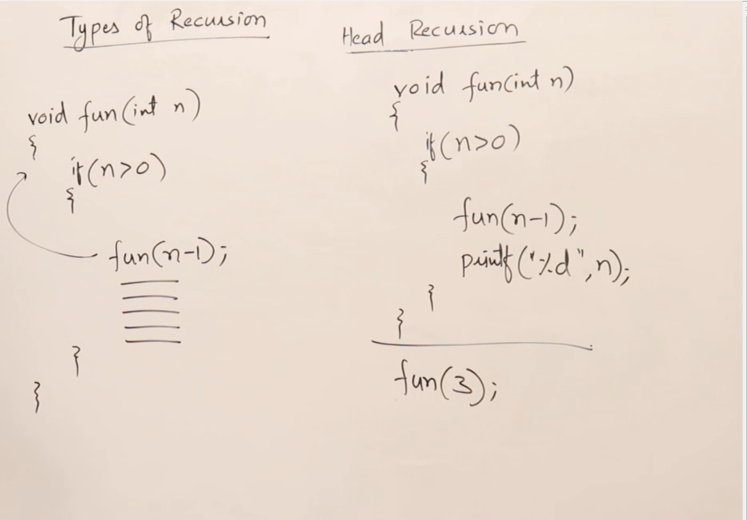 Types of Recursion
void fun(int n)
{
if(n>0)
{
fun(n-1);
}
}
Head Recursion
void fun(int n)
{
if(n>0)
{
fun(n-1);
printf("%d",n);
}
}
fun(3);